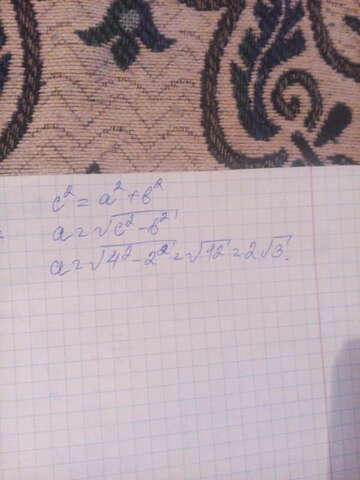 c² = a² + b²
a = √(c² - b²)
a = √(4² - 2²) = √12 = 2√3.